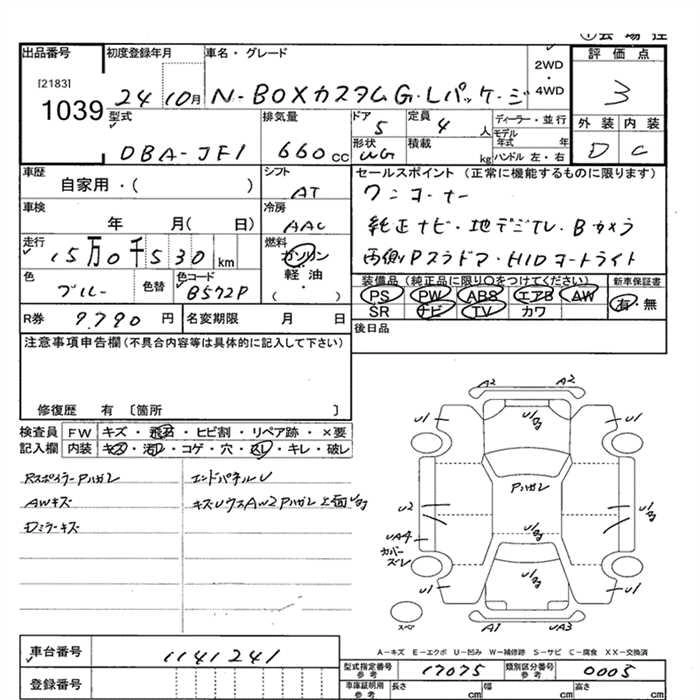 出品番号 初度登録年月 車名・グレード
[2183]
1039
24 10月 N-BOXカスタムG・Lパッケージ
2WD
・
4WD
評価点
3
型式 排気量 ドア 定員 ディーラー・並行
DBA-JF1 660cc 5 4人
モデル年式 年
形状 積載 ハンドル 左・右
WG kg
外装 内装
D C
車歴 シフト セールスポイント (正常に機能するものに限ります)
自家用・( ) AT ワンオーナー
車検 冷房
年 月( 日) AAC 純正ナビ・地デジTV・Bカメラ
走行 燃料
15万0千530km ガソリン 両側Pスラドア・HIDヘッドライト
軽・油
・
( )
色 色替 色コード
ブルー B572P
装備品 (純正品に限り〇をつけてください) 新車保証書
PS PW ABS エアB AW 有・無
SR ナビ TV カワ
R券 9,790円 名変期限 月 日
後日品
注意事項申告欄(不具合内容等は具体的に記入して下さい)
修復歴 有 〔箇所 〕
検査員 FW キズ・飛石・ヒビ割・リペア跡・×要
記入欄 内装 キズ・汚レ・コゲ・穴・スレ・キレ・破レ
Rスポイラーアハガレ エンドパネルU
AWキズ キズUウスAW2アハガレ上面Uョ
Dミラーキズ
A2 A2
U1 U1
アハガレ
U2
UA4
カバー
ズレ
U1 U1
スペ
A1 UA3
A-キズ E-エクボ U-凹み W-補修跡 S-サビ C-腐食 XX-交換済
車台番号 1141241
登録番号
型式指定番号 参考 17075 類別区分番号 参考 0003
車庫証明用 参考 長さ cm 幅 cm 高さ cm